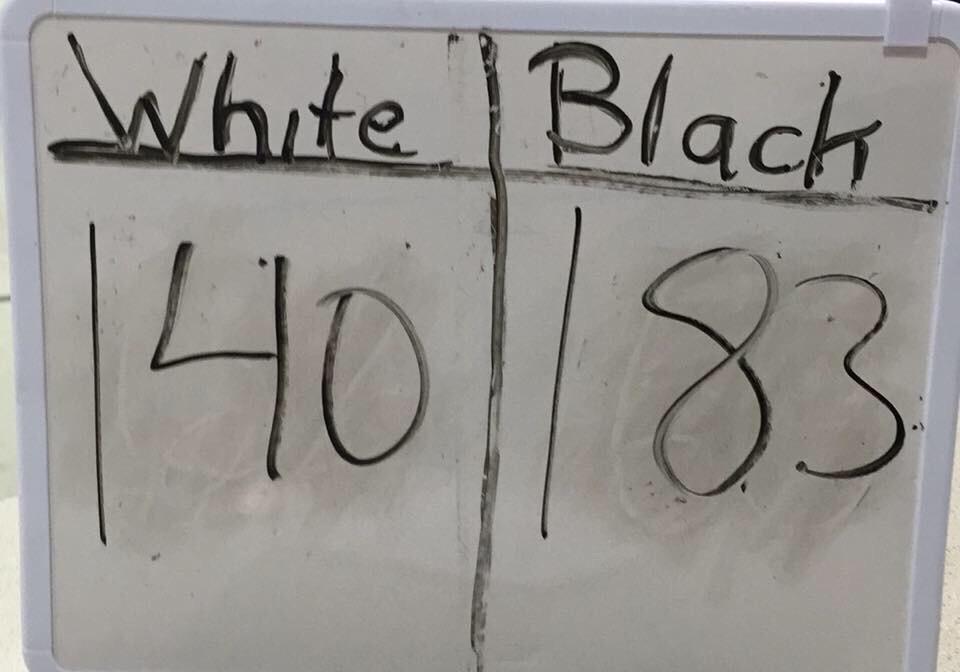 White Black
140 183